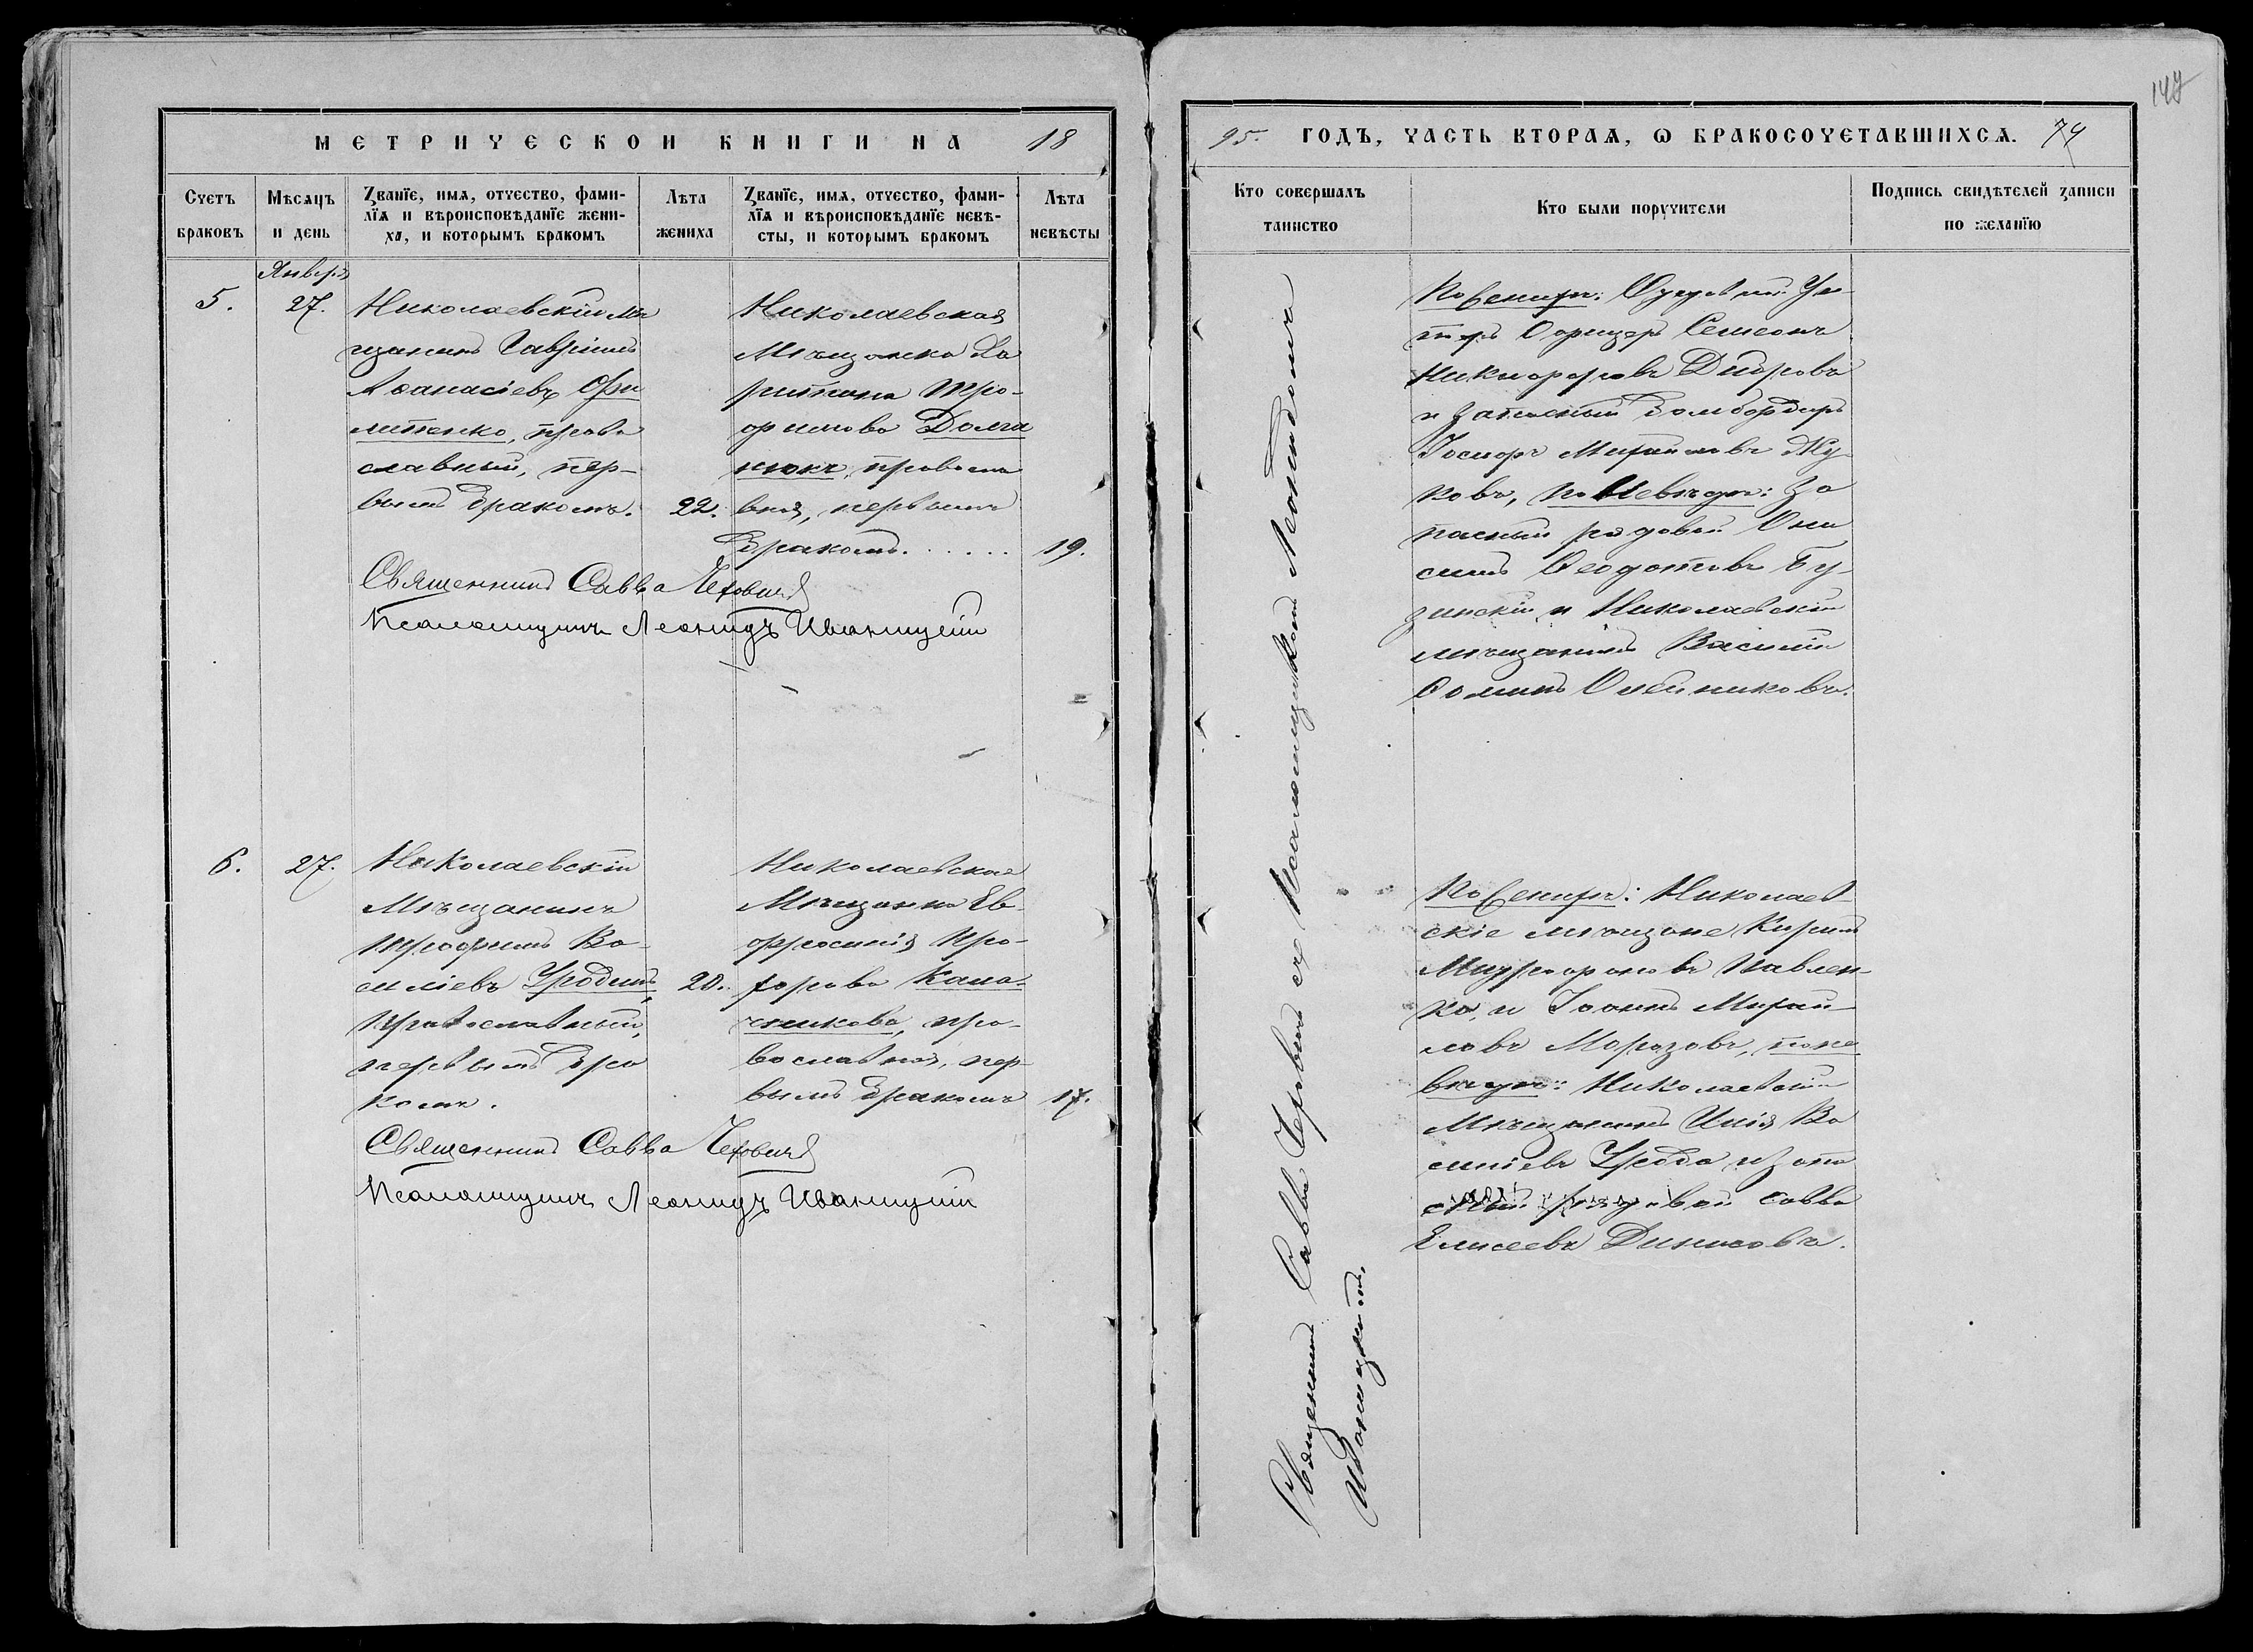 147
МЕТРИЧЕСКОЙ КНИГИ НА 18
95. ГОДЪ, ЧАСТЬ ВТОРАѦ, Ѡ БРАКОСОЧЕТАВШИХСѦ. 74
Счетъ браковъ
Мѣсѧцъ и день
Званїе, имѧ, отчество, фами-
лїѧ и вѣроисповѣданїе жени-
ха, и которымъ бракомъ
Лѣта жениха
Званїе, имѧ, отчество, фами-
лїѧ и вѣроисповѣданїе невѣ-
сты, и которымъ бракомъ
Лѣта невѣсты
Кто совершалъ
таинство
Кто были поручители
Подпись свидѣтелей записи
по желанїю
Январь
5.
27.
Николаевскій мѣ
щанинъ Гавріилъ
Аѳанасіевъ Фи
липенко, право
славный, пер-
вымъ бракомъ.
22.
Николаевская
Мѣщанка Ха
ритина Тро-
фимова Долга
нюкъ, правосла
вная, первымъ
бракомъ......
19.
Священникъ Савва
Псаломщикъ Леонидъ Иваницкій
По Женихѣ: Ун-
теръ Офицеръ Симеонъ
Никифоровъ
и запасный бомбардиръ
Іосифъ Михайловъ Жу-
ковъ, по Невѣстѣ: За
пасный рядовой Они
симъ Ѳеодотовъ Бу-
зинскій и Николаевскій
мѣщанинъ Василій
Ѳоминъ Олейниковъ.
6.
27.
Николаевскій
Мѣщанинъ
Трофимъ Ва-
силіевъ
Православный,
первымъ бра
комъ.
20.
Николаевская
Мѣщанка Ев-
фросинія Про-
хорова Кала-
чникова, пра-
вославная, пер-
вымъ бракомъ
17.
Священникъ Савва
Псаломщикъ Леонидъ Иваницкій
По Женихѣ: Николаев-
скіе мѣщане Кирилъ
Митрофановъ Павлен-
ко, и Іоаннъ Михай-
ловъ Морозовъ, по не
вѣстѣ: Николаевскій
Мѣщанинъ Илія Ва
силіевъ и запа
сный рядовой Савва
Елисеевъ Денисовъ.
Священникъ Савва съ Псаломщикомъ Леонидомъ
Иваницкимъ.